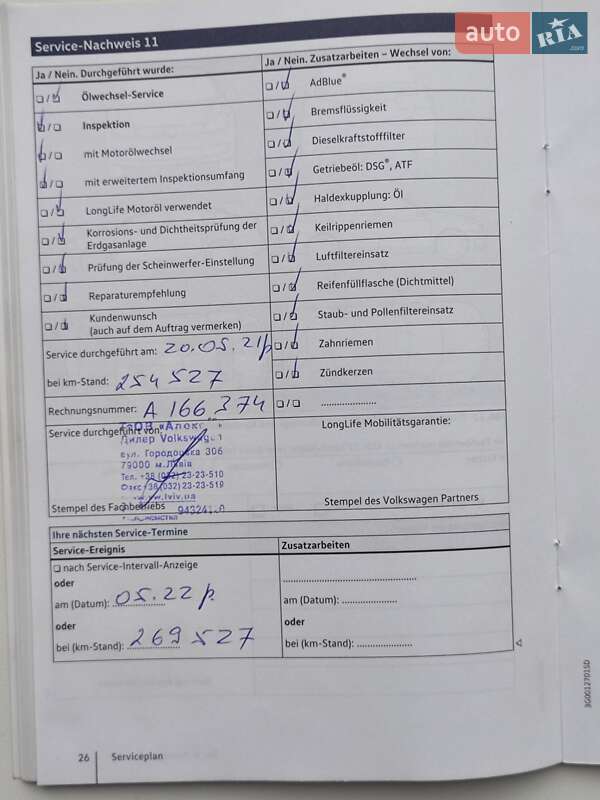 auto RIA.com
Service-Nachweis 11
Ja / Nein. Durchgeführt wurde:
Ja / Nein. Zusatzarbeiten – Wechsel von:
Ölwechsel-Service
AdBlue®
Inspektion
Bremsflüssigkeit
mit Motorölwechsel
Dieselkraftstofffilter
mit erweitertem Inspektionsumfang
Getriebeöl: DSG®, ATF
LongLife Motoröl verwendet
Haldexkupplung: Öl
Korrosions- und Dichtheitsprüfung der
Erdgasanlage
Keilrippenriemen
Prüfung der Scheinwerfer-Einstellung
Luftfiltereinsatz
Reparaturempfehlung
Reifenfüllflasche (Dichtmittel)
Kundenwunsch
(auch auf dem Auftrag vermerken)
Staub- und Pollenfiltereinsatz
Service durchgeführt am: 20.05.21р
Zahnriemen
bei km-Stand: 254 527
Zündkerzen
Rechnungsnummer: A 166 374
Service durchgeführt von:
ТзОВ «Алекс»
Дилер Volkswagen
вул. Городоцька 306
79000 м.Львів
Тел. +38 (032) 23-23-510
Факс +38(032) 23-23-519
LongLife Mobilitätsgarantie:
Stempel des Fachbetriebs
Stempel des Volkswagen Partners
Ihre nächsten Service-Termine
Service-Ereignis
Zusatzarbeiten
nach Service-Intervall-Anzeige
oder
am (Datum): 05.22 р.
am (Datum):
oder
oder
bei (km-Stand): 269 527
bei (km-Stand):
3G0012701SD
26 Serviceplan